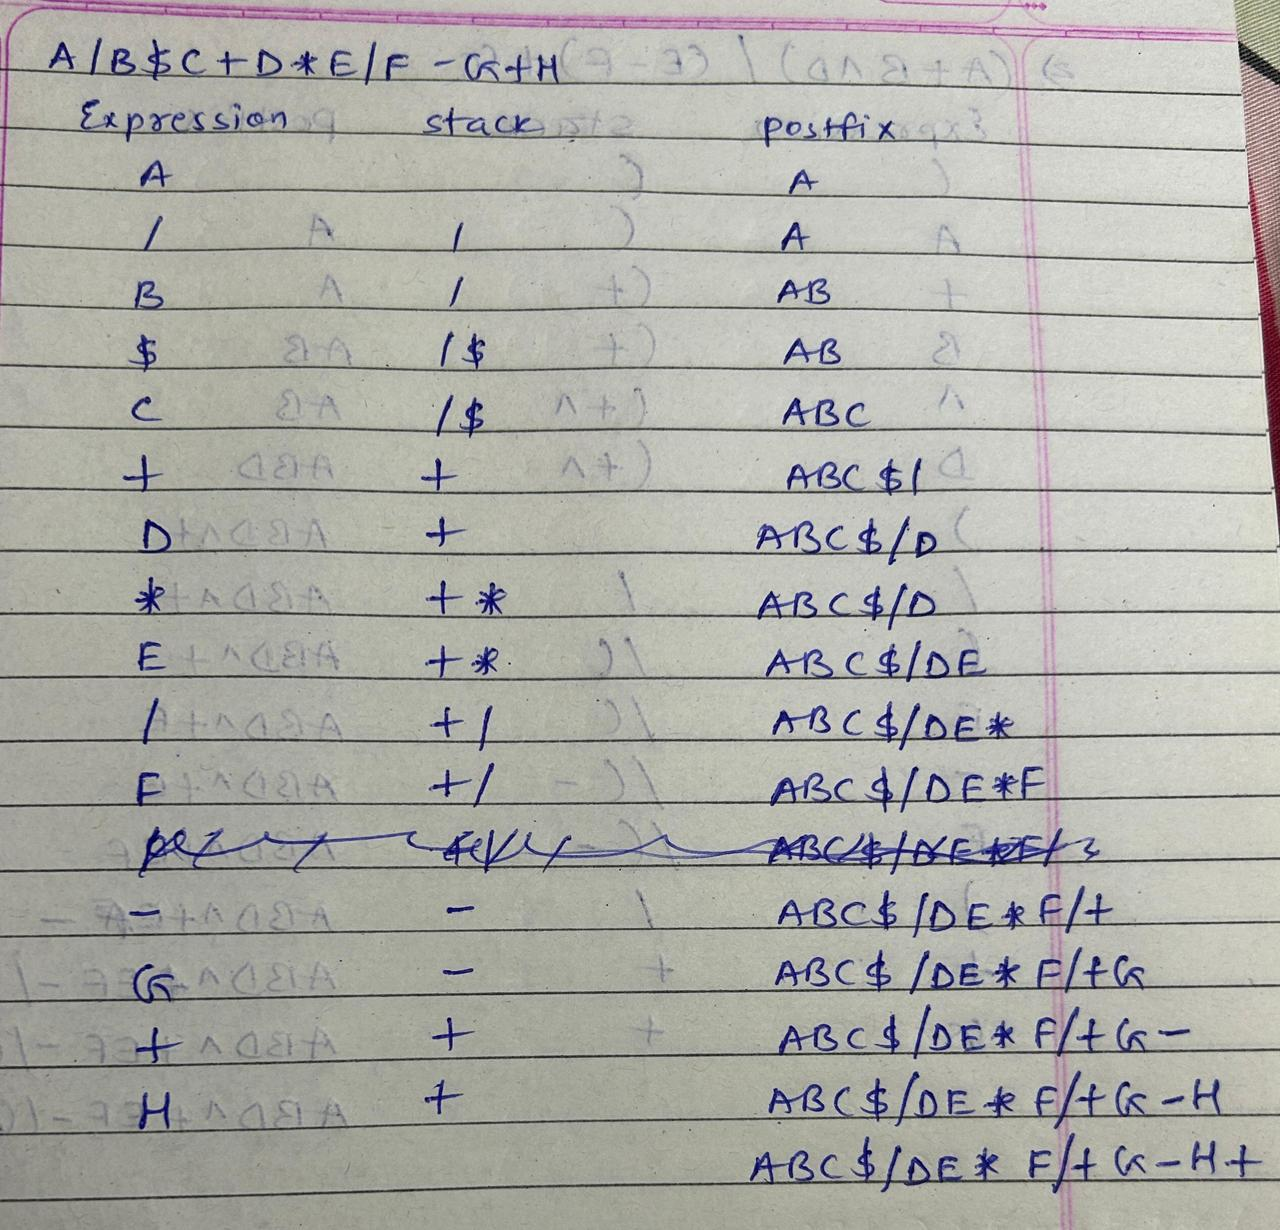 A/B$C+D*E/F-G+H
Expression stack postfix
A A
/ / A
B / AB
$ /$ AB
C /$ ABC
+ + ABC$/
D + ABC$/D
* +* ABC$/D
E +* ABC$/DE
/ +/ ABC$/DE*
F +/ ABC$/DE*F
- - ABC$/DE*F/+
G - ABC$/DE*F/+G
+ + ABC$/DE*F/+G-
H + ABC$/DE*F/+G-H
ABC$/DE*F/+G-H+